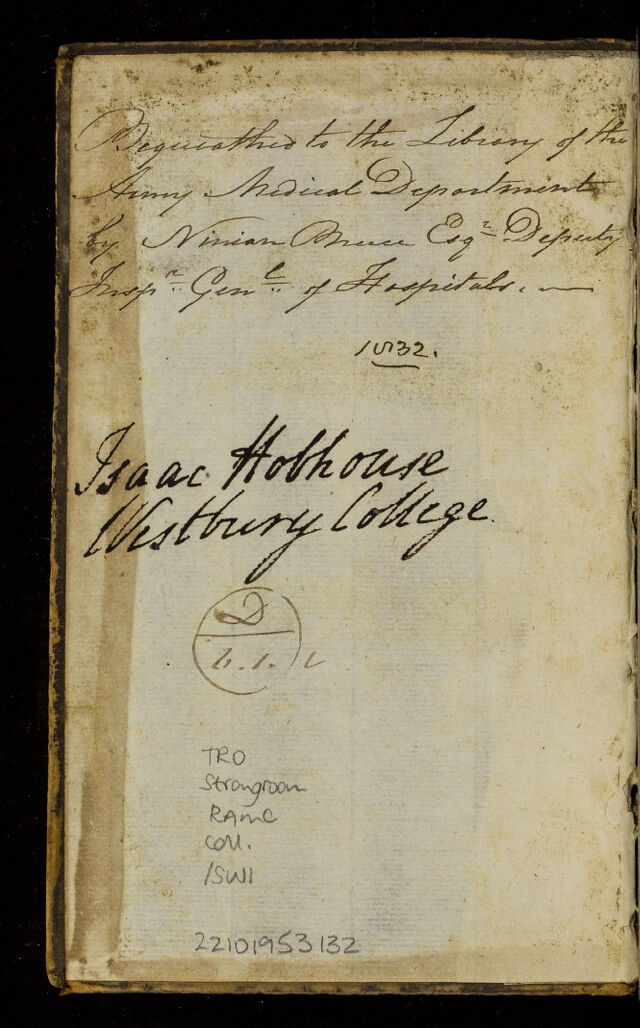 Bequeathed to the Library of the
Army Medical Department
by Ninian Bruce Esqr Deputy
Inspr. Genl. of Hospitals. —
1832.
Isaac Hobhouse
Westbury College
D
6.1.
TRO
Strongroom
RAMC
COLL.
/SWI
22101953132